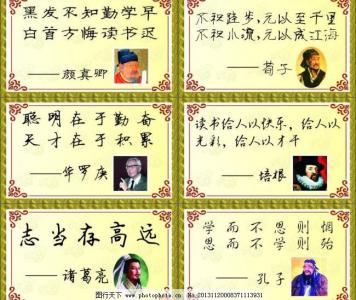 黑发不知勤学早
白首方悔读书迟
——颜真卿
不积跬步，无以至千里
不积小流，无以成江海
——荀子
聪明在于勤奋
天才在于积累
——华罗庚
读书给人以快乐，给人以
光彩，给人以才干
——培根
志当存高远
——诸葛亮
学而不思则惘
思而不学则殆
——孔子